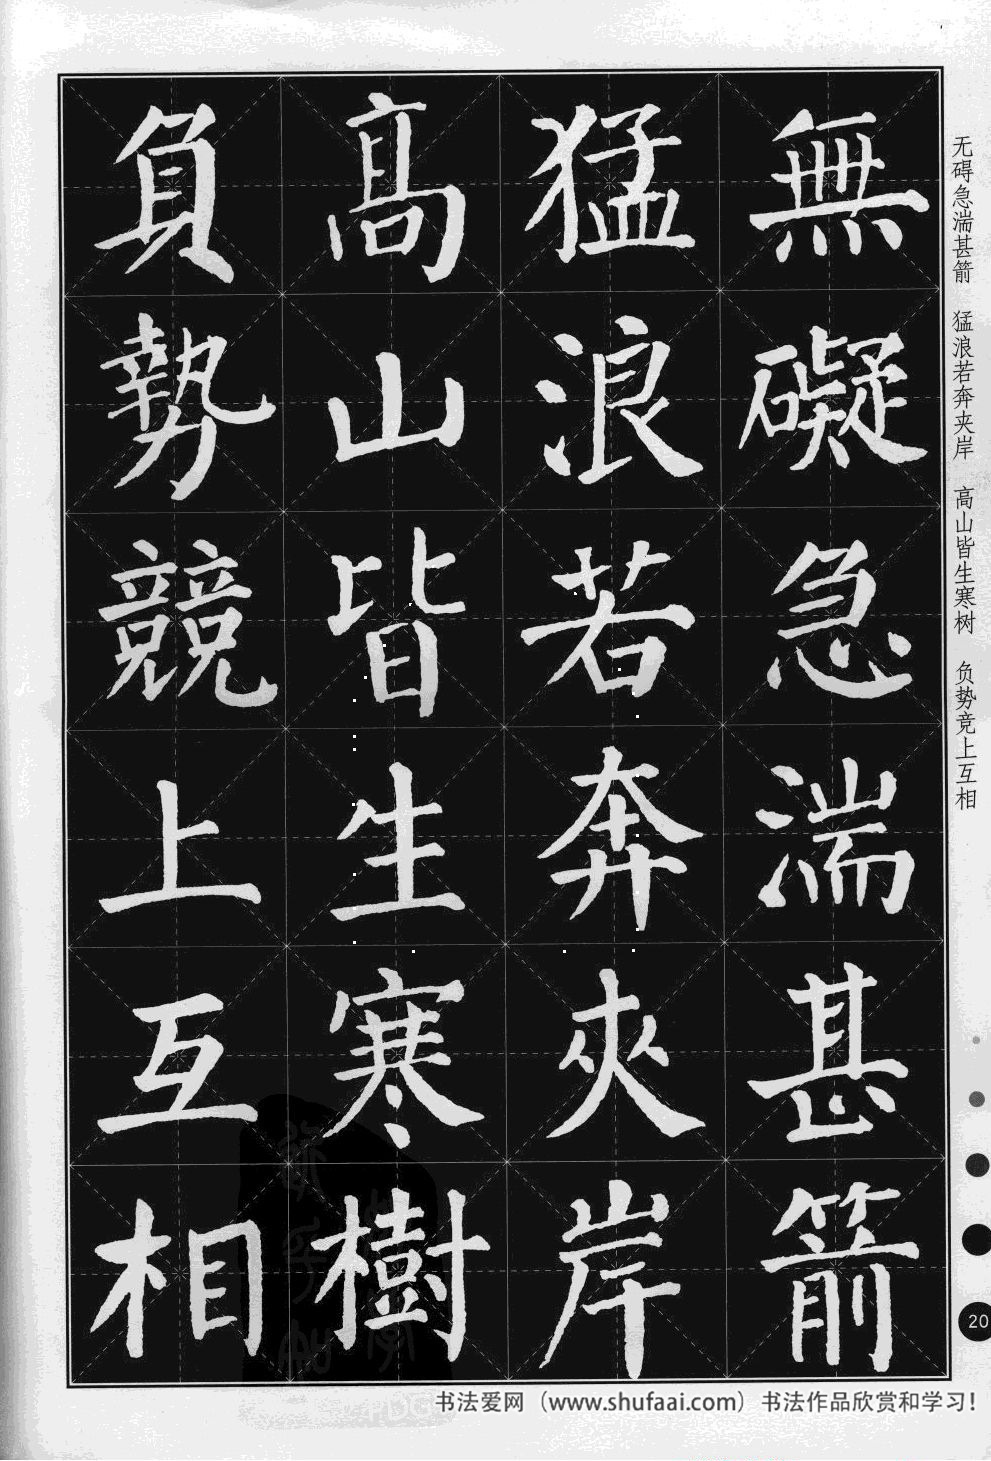 無礙急湍甚箭
猛浪若奔夾岸
高山皆生寒樹
負勢競上互相
无碍急湍甚箭 猛浪若奔夹岸 高山皆生寒树 负势竞上互相
20
书法爱网（www.shufaai.com）书法作品欣赏和学习！
PDG